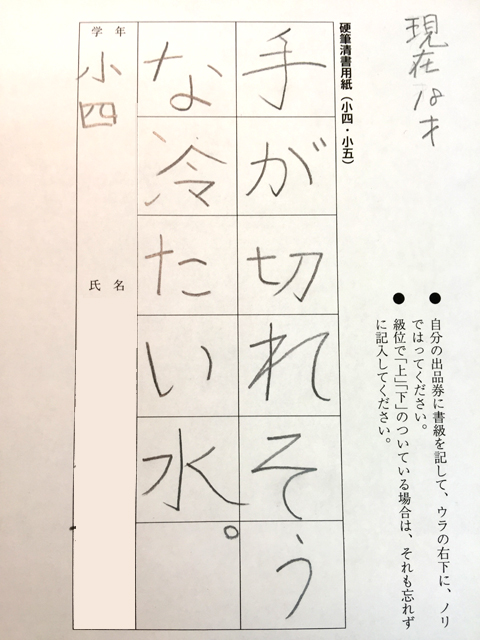 現在18才
硬筆清書用紙（小四・小五）
手が切れそう
な冷たい水。
学年
小四
氏名
●自分の出品券に書級を記して、ウラの右下に、ノリ
ではってください。
●級位で「上」「下」のついている場合は、それも忘れず
に記入してください。